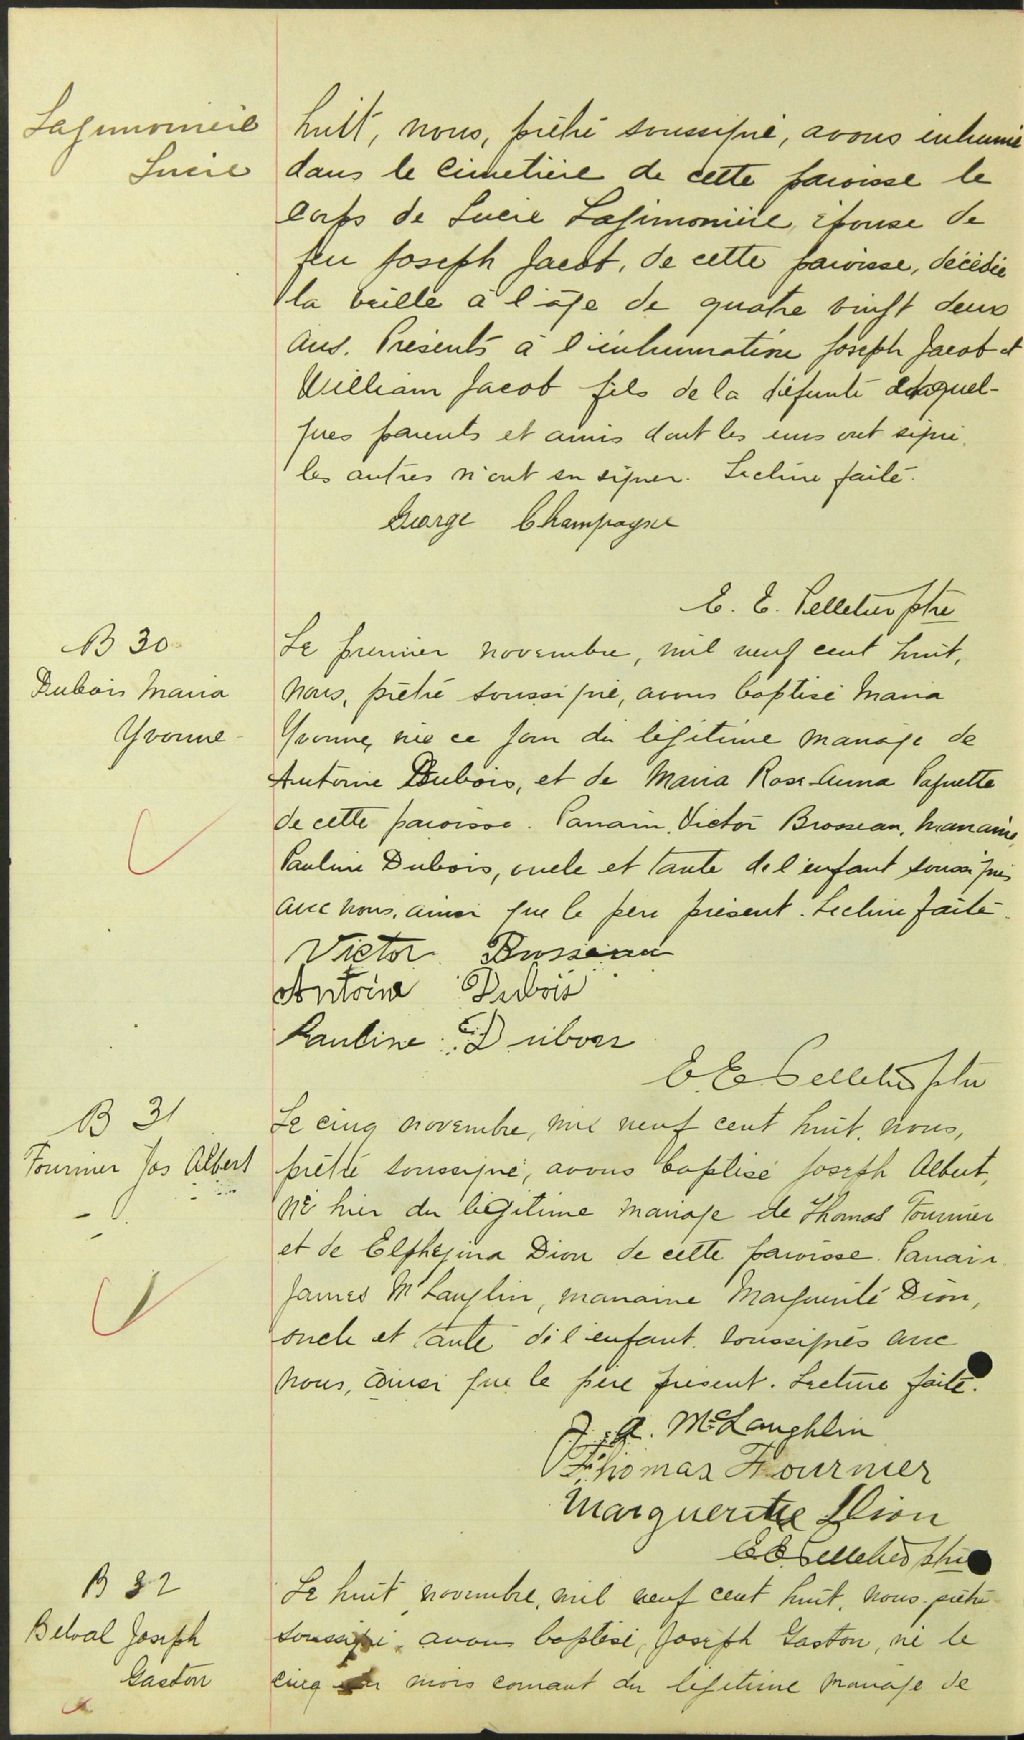 Lagimonière
Lucie
huit, nous, prêtre soussigné, avons inhumé
dans le cimetière de cette paroisse le
corps de Lucie Lagimonière, épouse de
feu Joseph Jacob, de cette paroisse, décédée
la veille à l'âge de quatre vingt deux
ans. Présents à l'inhumation Joseph Jacob et
William Jacob fils de la défunte et quel-
ques parents et amis dont les uns ont signé
les autres n'ont su signer. Lecture faite.
George Champagne
E. E. Pelletier ptre
B 30
Dubois Maria
Yvonne
Le premier novembre, mil neuf cent huit,
nous, prêtre soussigné, avons baptisé Maria
Yvonne, née ce jour du légitime mariage de
Antoine Dubois, et de Maria Rose-Anna Paquette
de cette paroisse. Parrain, Victor Brosseau, marraine,
Pauline Dubois, oncle et tante de l'enfant soussignés
avec nous, ainsi que le père présent. Lecture faite.
Victor Brosseau
Antoine Dubois
Pauline Dubois
E. E. Pelletier ptre
B 31
Fournier Jos Albert
Le cinq novembre, mil neuf cent huit, nous,
prêtre soussigné, avons baptisé Joseph Albert,
né hier du légitime mariage de Thomas Fournier
et de Elphégina Dion de cette paroisse. Parrain
James McLauglin, marraine Marguerite Dion,
oncle et tante de l'enfant soussignés avec
nous, ainsi que le père présent. Lecture faite.
J. A. McLaughlin
Thomas Fournier
Marguerite Dion
E E Pelletier ptre
B 32
Belval Joseph
Gaston
Le huit novembre, mil neuf cent huit, nous prêtre
soussigné, avons baptisé, Joseph Gaston, né le
cinq du mois courant du légitime mariage de